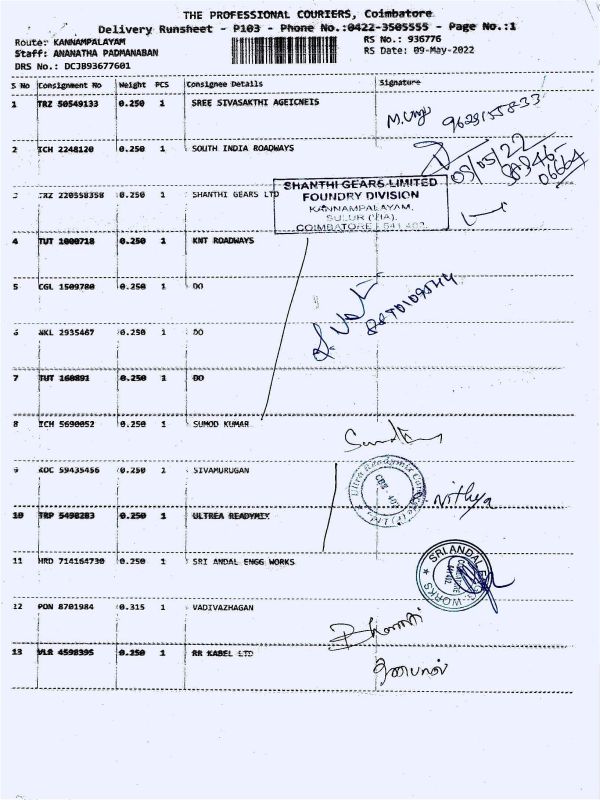 THE PROFESSIONAL COURIERS, Coimbatore
Delivery Runsheet - P103 - Phone No.:0422-3505555 - Page No.:1
Route: KANNAMPALAYAM
Staff: ANANATHA PADMANABAN
DRS No.: DCJB93677601
RS No.: 936776
RS Date: 09-May-2022
S No Consignment No Weight PCS Consignee Details Signature
1 TRZ 50549133 0.250 1 SREE SIVASAKTHI AGEICNEIS
2 ICH 2248120 0.250 1 SOUTH INDIA ROADWAYS
09/05/22
3 TRZ 220558358 0.250 1 SHANTHI GEARS LTD
SHANTHI GEARS LIMITED
FOUNDRY DIVISION
KANNAMPALAYAM,
SULUR (VIA),
COIMBATORE - 641 402.
4 TUT 1000718 0.250 1 KNT ROADWAYS
5 CGL 1509780 0.250 1 DO
6 NKL 2935467 0.250 1 DO
7 TUT 160891 0.250 1 DO
8 ICH 5690052 0.250 1 SUMOD KUMAR
9 KDC 59435456 0.250 1 SIVAMURUGAN
10 TRP 5498283 0.250 1 ULTREA READYMIX
Nithya
11 HRD 714164730 0.250 1 SRI ANDAL ENGG WORKS
SRI ANDAL
WORKS
12 PON 8701984 0.315 1 VADIVAZHAGAN
13 VLR 4598395 0.250 1 RR KABEL LTD